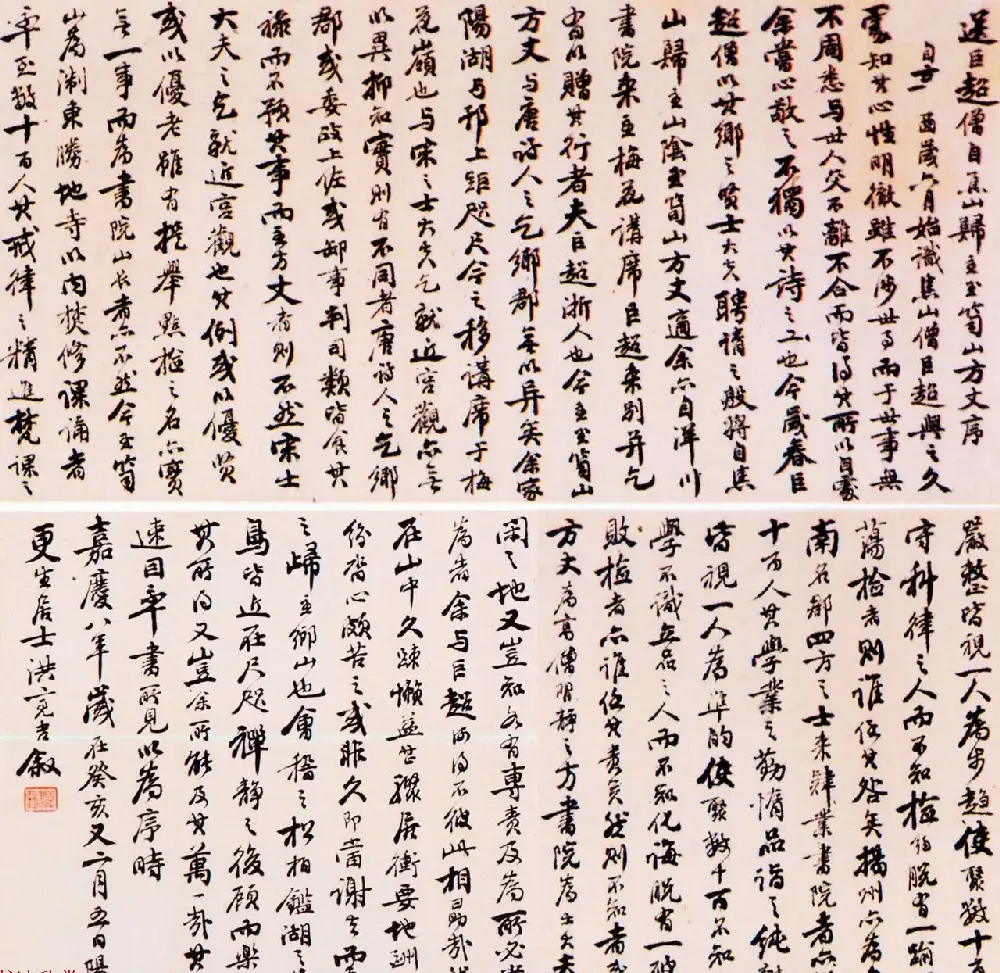 送巨超僧自焦山歸主玉笥山方丈序
自辛酉歲六月始識焦山僧巨超與之久
處知其心性明徹雖不涉世事而于世事無
不周悉与世人交不離不合而皆得其所以自處
余嘗心敬之不獨以其詩之工也今歲春巨
超僧以其鄉之賢士大夫聘請之殷將自焦
山歸主山陰玉笥山方丈適余亦自洋川
書院來主梅花講席巨超來別并乞
有以贈其行者夫巨超浙人也今主玉笥山
方丈与唐詩人之乞鄉郡無以异矣余家
陽湖与邗上距咫尺今之移講席于梅
花嶺也与宋之士大夫乞就近宮觀亦無
以異抑知實則有不同者唐詩人之乞鄉
郡或委政上佐或卸事判司類皆食其
祿而不預其事而主方丈者則不然宋士
大夫之乞就近宮觀也其例或以優賢
或以優老雖有提舉點檢之名亦實
無一事而為書院山長者亦不然今玉笥
山為浙東勝地寺以內焚修課誦者
平至數十百人其戒律之精進梵課之
嚴整皆視一人為步趨使聚數十百
守科律之人而不知檢物脫有一踰
蕩檢者則誰任其咎矣揚州亦為
南名郡四方之士來肄業書院者亦
十百人其學業之勤惰品詣之純
皆視一人為準的使聚數十百不知
學不識立品之人而不知化誨脫有一
敗檢者亦誰任其責矣然則不知者或
方丈為高僧習靜之方書院為士大夫
閑之地又豈知各有專責及為所必當
為者余与巨超何得不彼此相勗哉
在山中久疎懶益甚驟居衝要地訓
俗皆心頗苦之或非久即當謝去而
之歸主鄉山也會稽之松柏鑑湖之
鳥皆近在尺咫禪靜之後顧而樂
其所得又豈余所能及其萬一哉其
速因率書所見以為序時
嘉慶八年歲在癸亥又二月五日陽
更生居士洪亮吉敘